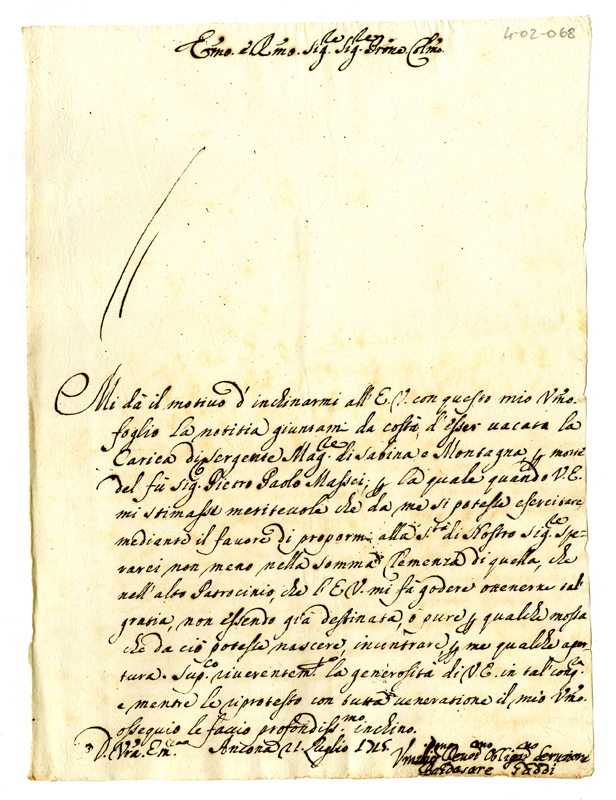 402-068
Emo. e Rmo. Sig.re Sig.re Prone Colmo.
Mi dà il motivo d'inchinarmi all'E.V. con questo mio Vmo.
foglio la notitia giuntami da costà, d'esser vacata la
Carica di Sergente Mag.re di Sabina e Montagna, p morte
del fù Sig. Pietro Paolo Massei, p la quale quando V.E.
mi stimasse meritevole che da me si potesse esercitare,
mediante il favore di propormi alla S.tà di Nostro Sig.re Spe-
rarei non meno nella somma Clemenza di quella, che
nell'alto Patrocinio, che l'E.V. mi fà godere ottenerne tal
gratia, non essendo già destinata, ò pure p qualche mossa
che da ciò potesse nascere, incontrare p me qualche aper-
tura. Sup.co riverentem.te la generosità di V.E. in tal cong.a
e mentre le riprotesto con tutta veneratione il mio Vmo.
ossequio le faccio profondiss.mo inchino.
D. Vra. Em.za Ancona 21 Luglio 1715.
Vmilmo Devot.mo Obligmo Servitore
Baldasare Gaddi